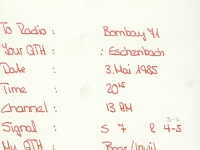 To Radio : Bombay 71
Your QTH : : Eschenbach
Date : 3. Mai 1985
Time : 20 45
Channel : 13 AM
3-4
Signal : S 7 R 4-5
My QTH :